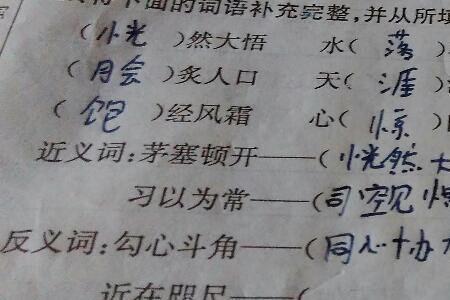 将下面的词语补充完整,并从所填
(恍)然大悟 水(落)
(脍)炙人口 天(涯)
(饱)经风霜 心(惊)
近义词:茅塞顿开——(恍然大
习以为常——(司空见惯
反义词:勾心斗角——(同心协力
近在咫尺——(